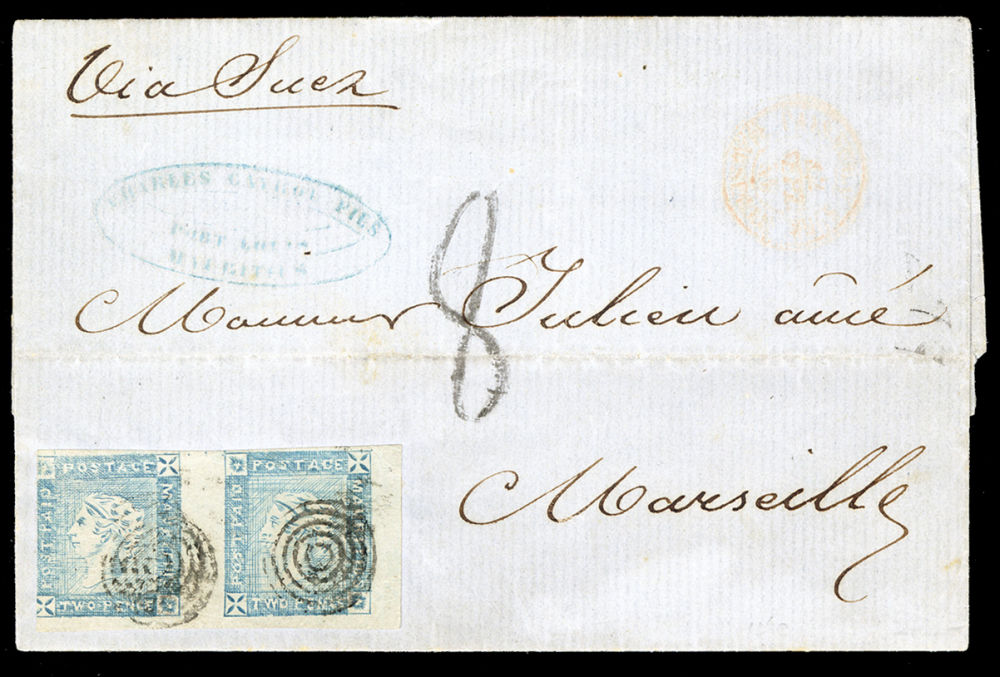 Via Suez
CHARLES FILS
PORT LOUIS
MAURITIUS
8
Monsieur Julien ainé
Marseille
POSTAGE POSTAGE
POST PAID POST PAID
TWO PENCE TWO PENCE